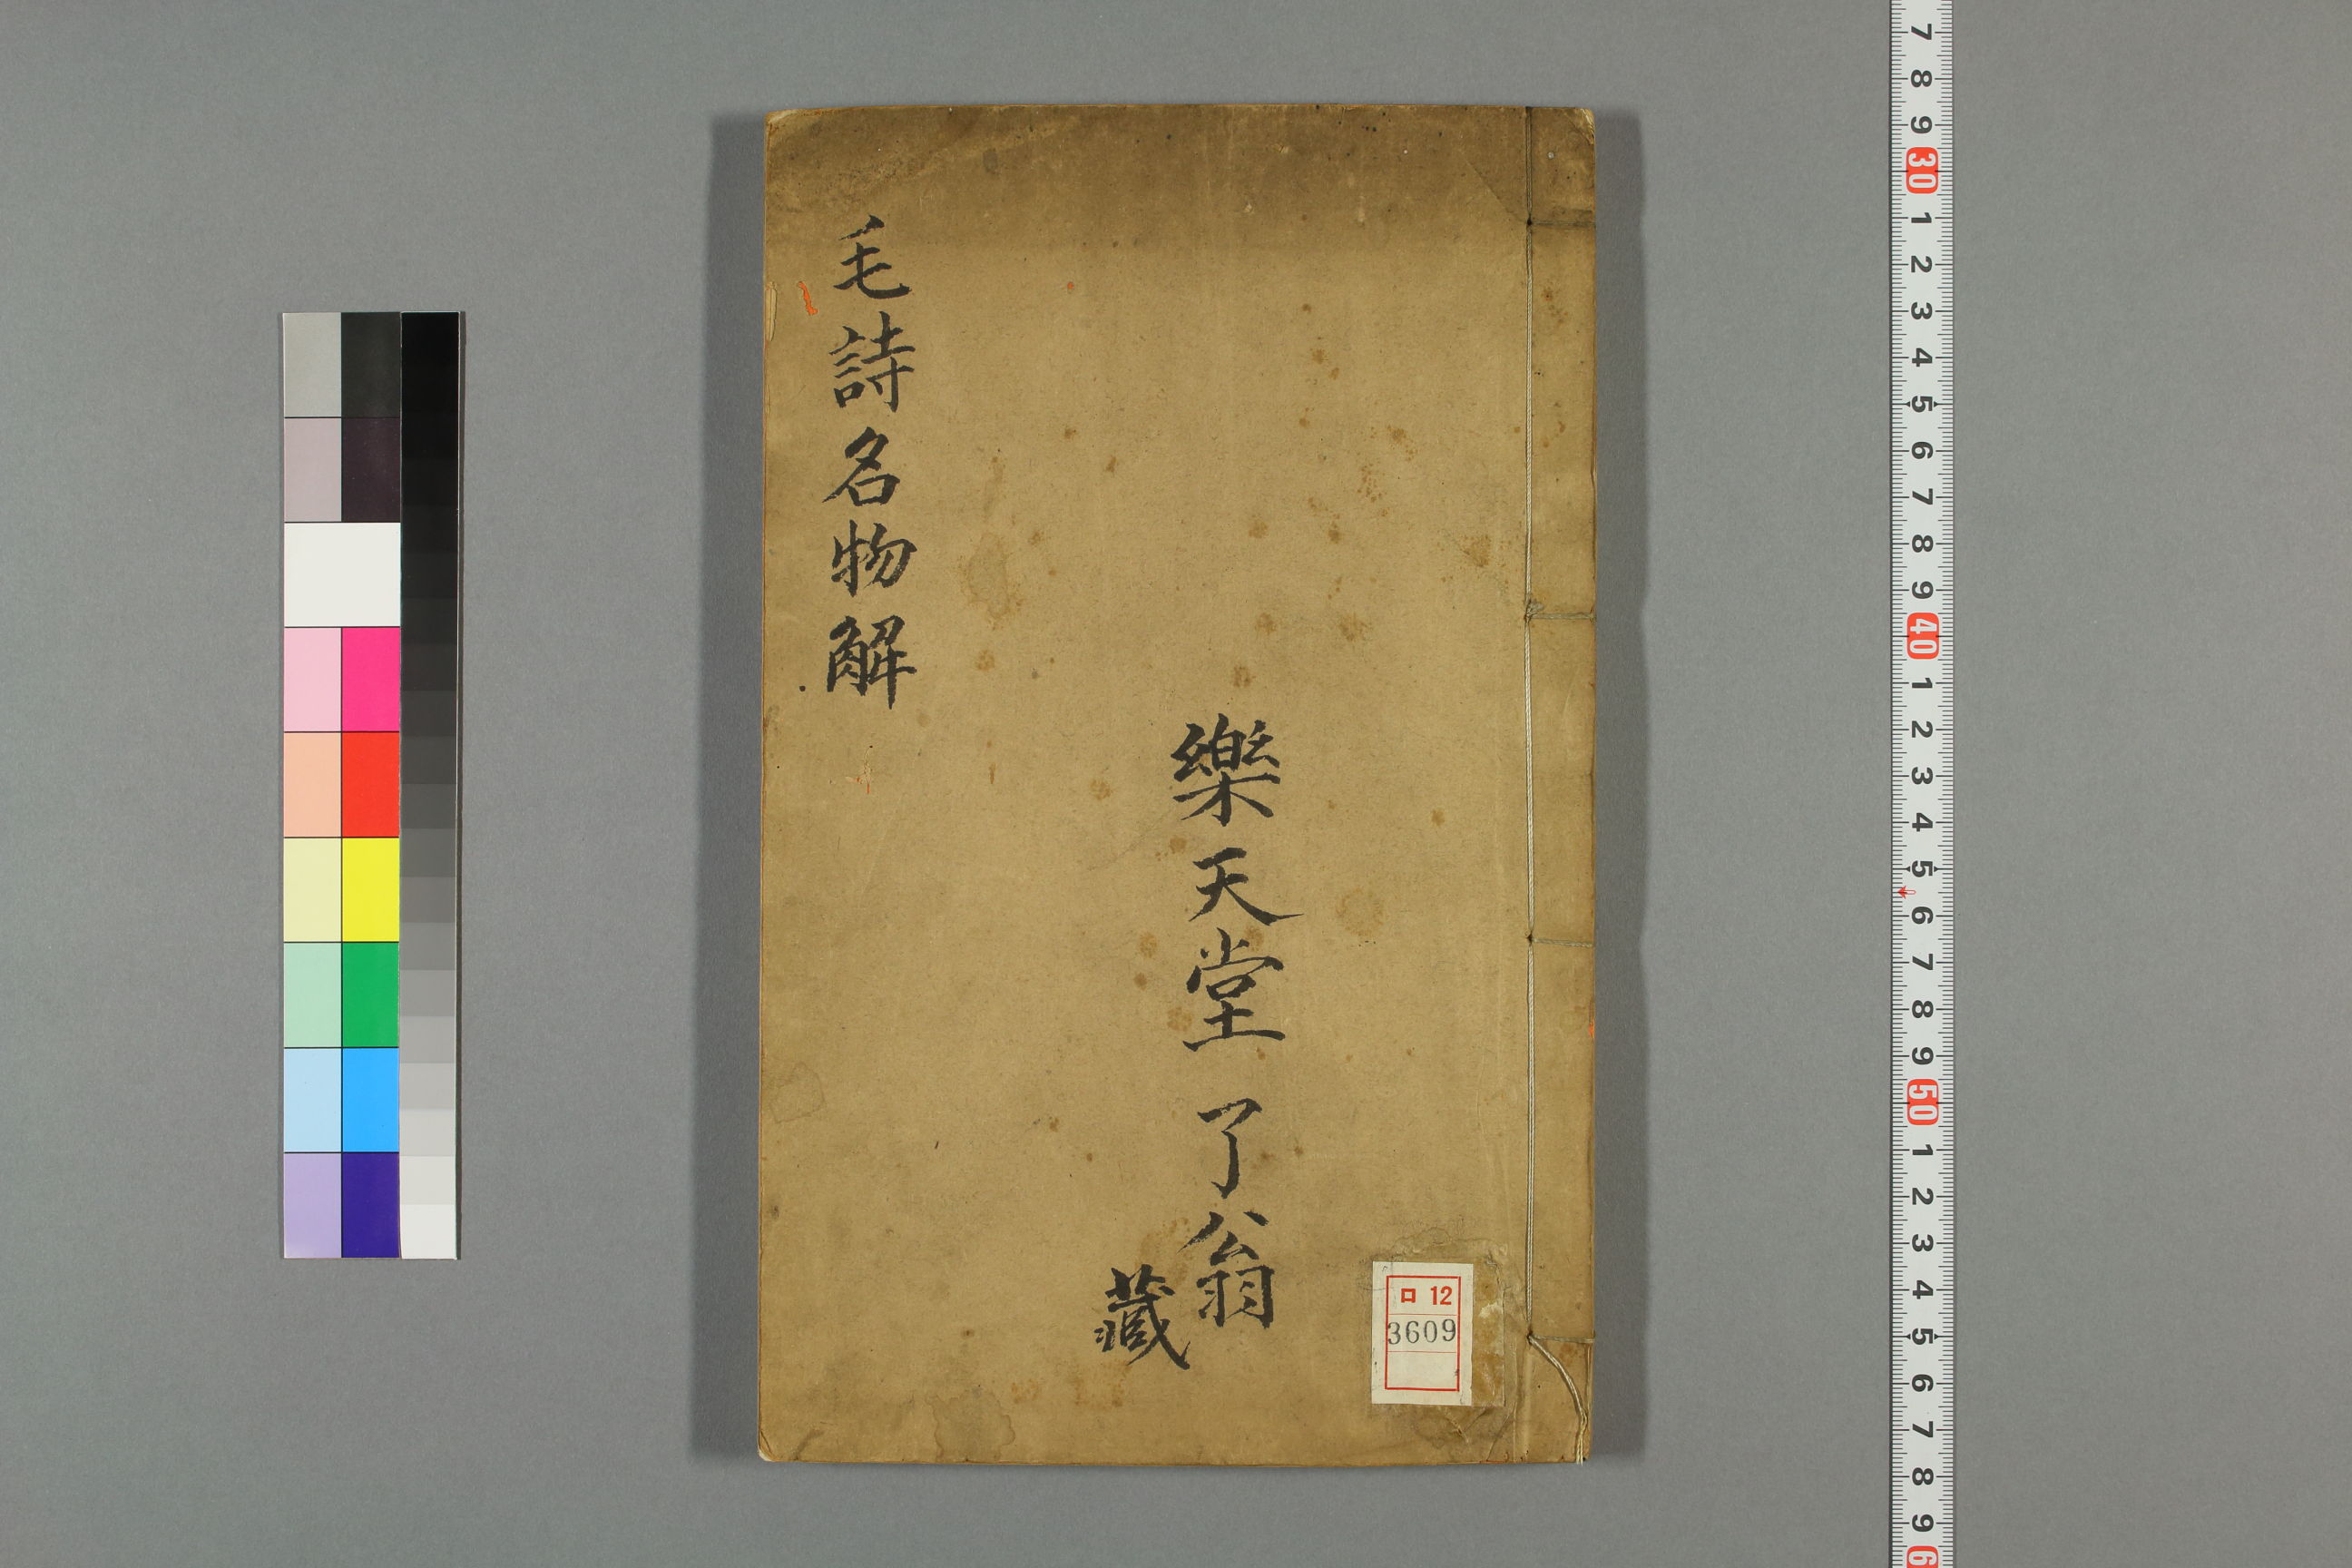 樂天堂 了翁
藏
毛詩名物解
ロ 12
3609
7 8 9 30 1 2 3 4 5 6 7 8 9 40 1 2 3 4 5 6 7 8 9 50 1 2 3 4 5 6 7 8 9 6